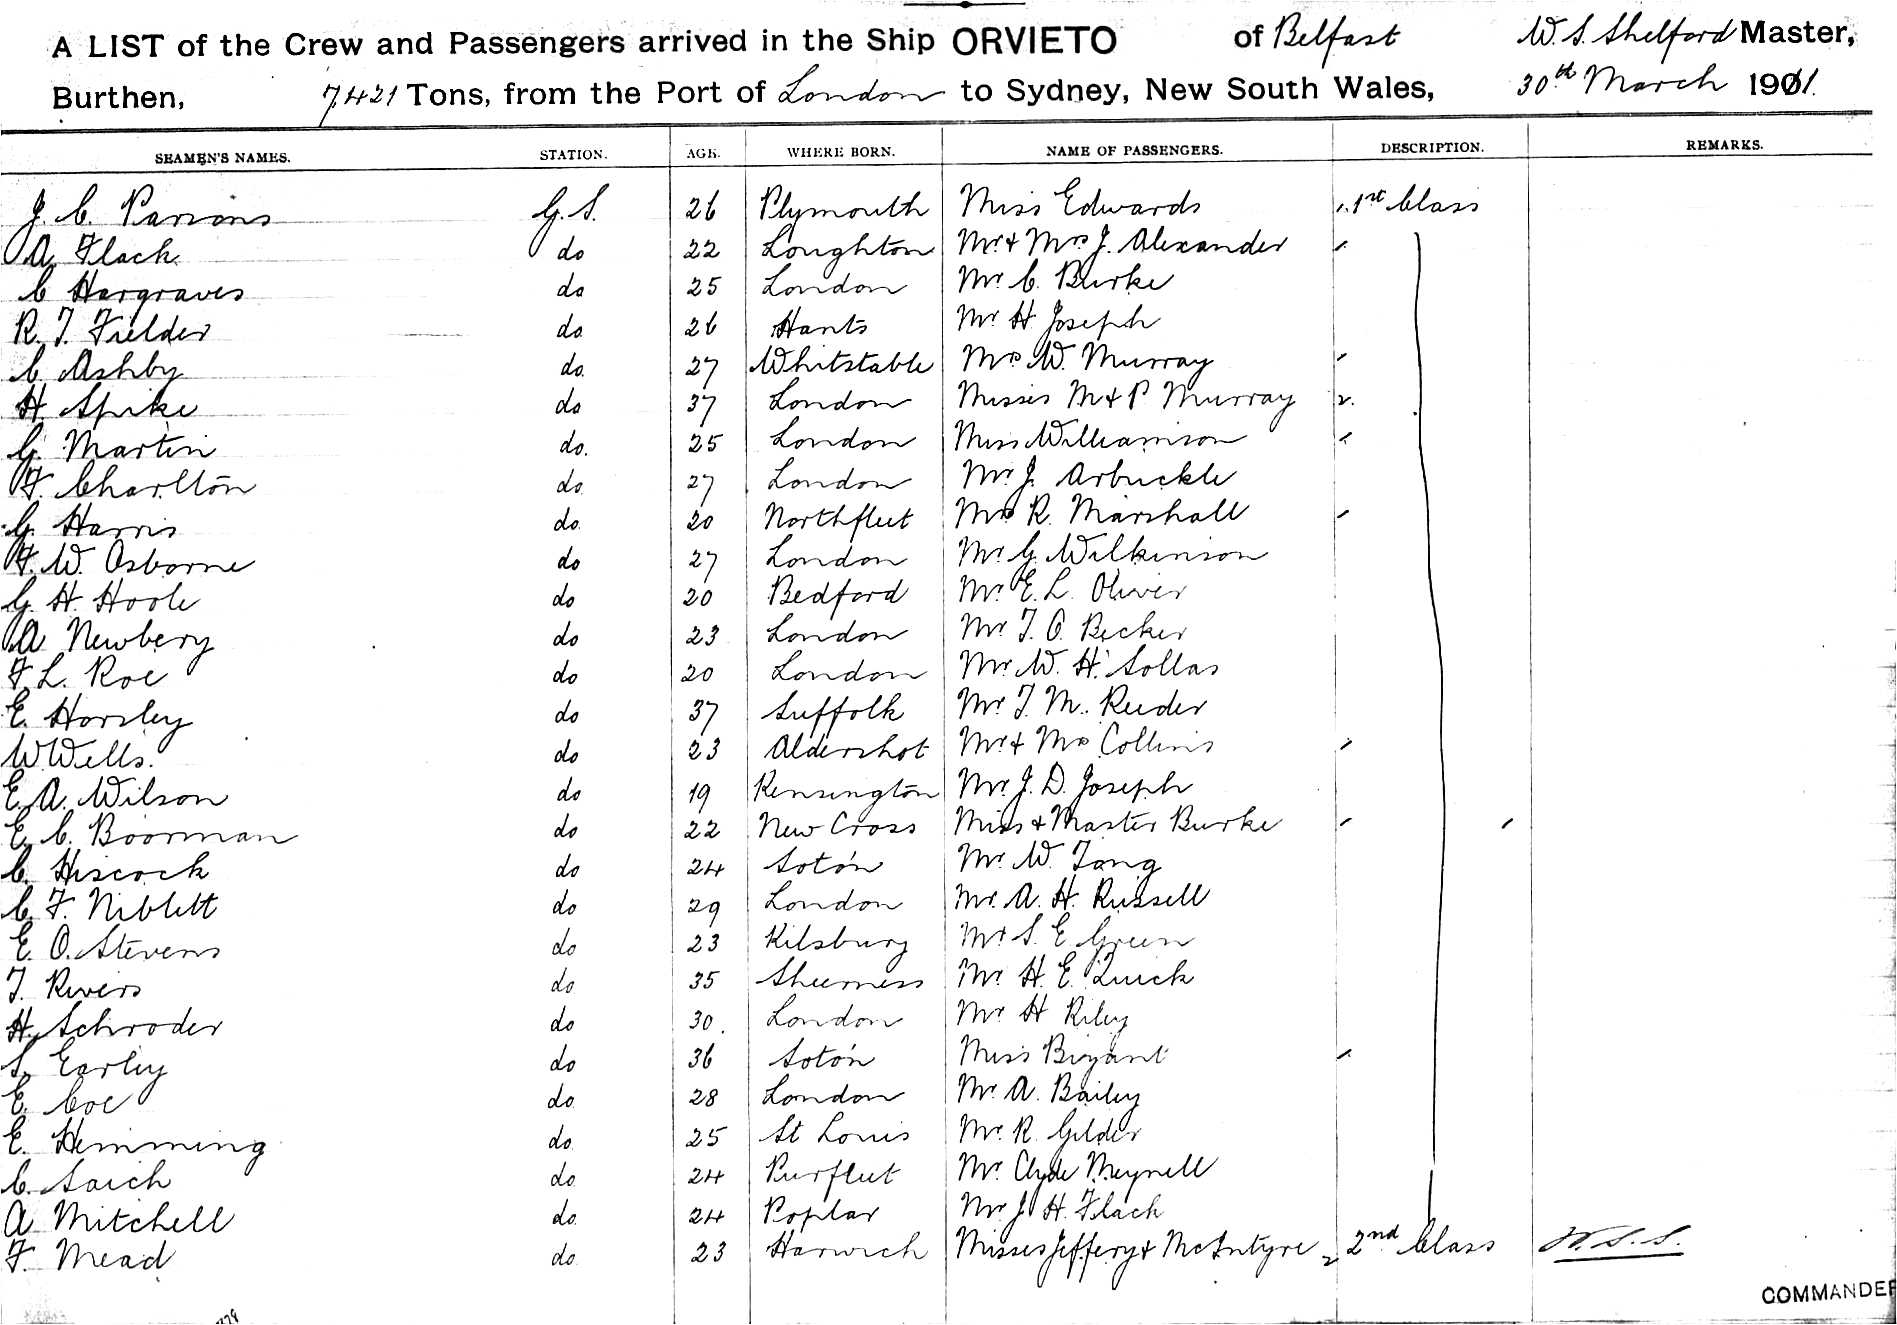 A LIST of the Crew and Passengers arrived in the Ship ORVIETO of Belfast W. S. Shelford Master,
Burthen, 7,421 Tons, from the Port of London to Sydney, New South Wales, 30th March 1911.
SEAMEN'S NAMES. STATION. AGE. WHERE BORN. NAME OF PASSENGERS. DESCRIPTION. REMARKS.
J. C. Parsons G.S. 26 Plymouth Miss Edwards 1. 1st Class
A Flack do 22 Loughton Mr & Mrs J. Alexander
C Hargraves do 25 London Mr C. Burke
R. T. Fielder do 26 Hants Mr H Joseph
C Ashby do. 27 Whitstable Mrs W. Murray
H Spike do 37 London Misses M & P Murray 2.
G. Martin do. 25 London Miss Williamson
F. Charlton do 27 London Mr J. Arbuckle
G. Harris do. 20 Northfleet Mrs R. Marshall
F. W. Osborne do 27 London Mr G. Wilkinson
G. H. Hoole do 20 Bedford Mr E. L. Oliver
A Newbery do 23 London Mr T. O. Becker
F L. Roe do 20 London Mr W. H. Sollas
E. Horsley do 37 Suffolk Mr T. M. Reeder
W. Wells. do 23 Aldershot Mr & Mrs Collins
E. A. Wilson do 19 Kensington Mr J. D. Joseph
E. C. Boorman do 22 New Cross Miss & Master Burke
C. Hiscock do 24 Soton Mr W. Tong
C. F. Niblett do 29 London Mr. A. H. Russell
E. O. Stevens do 23 Kilsbury Mr S. E Green
T. Rivers do 35 Sheerness Mr H. E. Quick
H. Schroder do 30. London Mr H Riley
S. Earley do 36 Soton Miss Bryant
E. Coe do 28 London Mr A. Bailey
E. Hemming do 25 St Louis Mr. R. Gilder
C. Saich do 24 Purfleet Mr. Clyde Meynell
A Mitchell do. 24 Poplar Mr J H. Flack
F. Mead do. 23 Harwich Misses Jeffery & McIntyre 2 2nd Class W. S. S.
COMMANDER